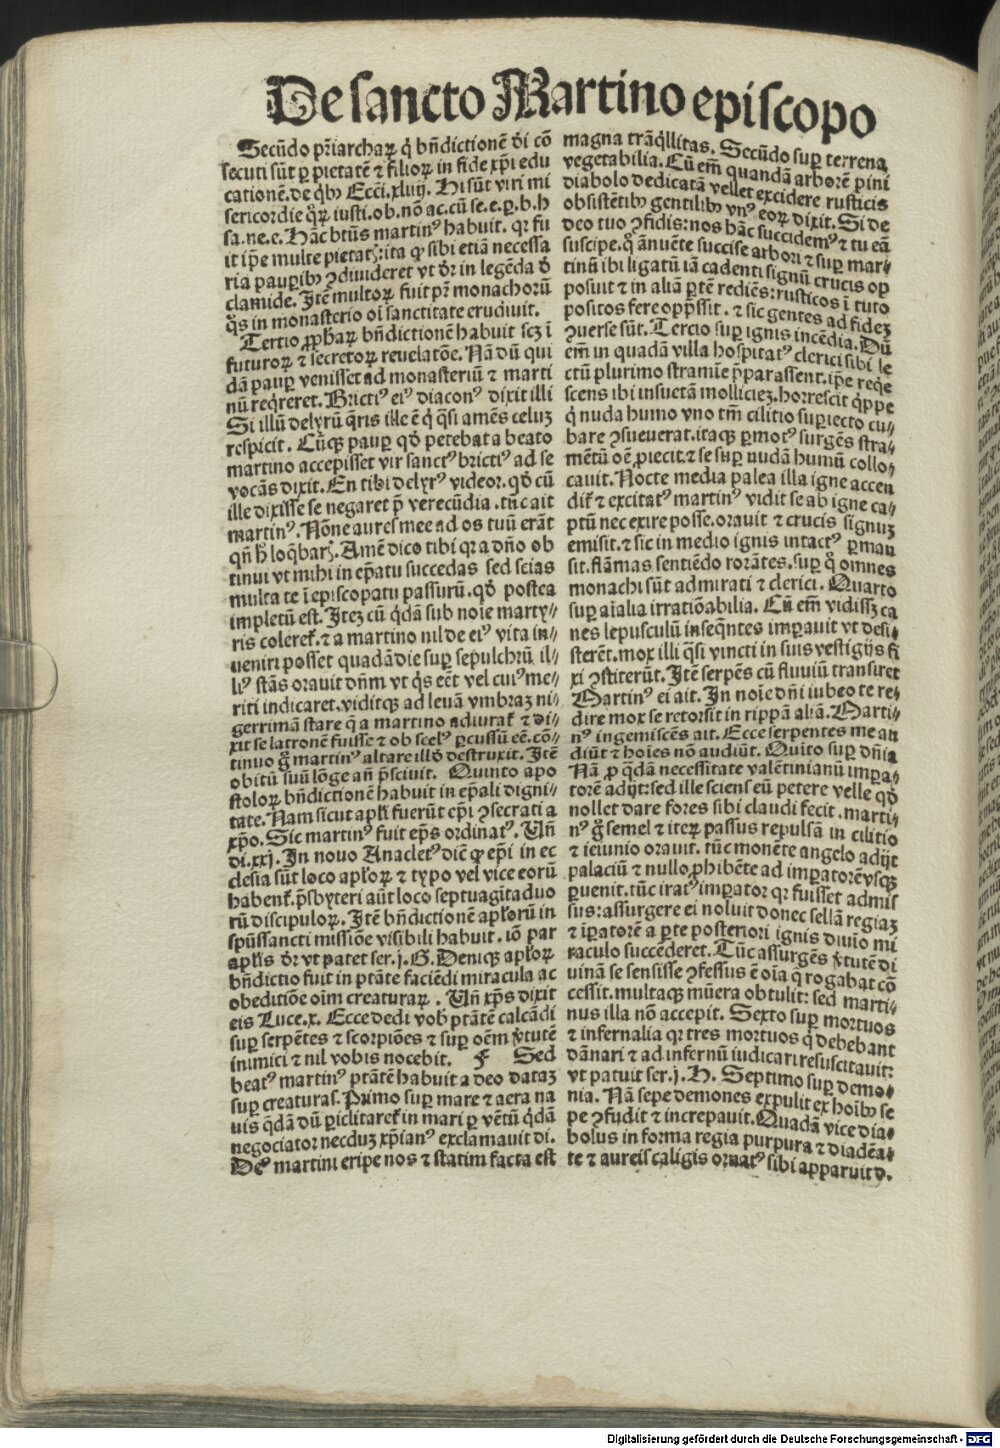 De sancto Martino episcopo
Secūdo pr̄iarchaꝝ q̇ bn̄dictionē dei cō
secuti sūt ꝑ pietatē ⁊ filioꝝ in fide xp̄i edu
cationē. de qͥbꝫ Ecci. xliiij. Hi sūt viri mi
sericordie qͦꝝ iusti. ob. nō ac. cū se. e. ꝑ. b. h
sa. ne. e. Hāc btūs martinꝰ habuit. qꝛ fu
it ip̄e multe pietatꝭ: ita ꝙ sibi etiā necessa
ria pauꝑibꝫ ꝯdiuideret vt dꝛ in legēda d̓
clamide. Itē multoꝝ fuit pr̄ monachorū
qͦs in monasterio oī sanctitate erudiuit.
Tertio ꝓph̄aꝝ bn̄dictionē habuit scꝫ ī
futuroꝝ ⁊ secretoꝝ reuelatōe. Nā dū qui
dā pauꝑ venisset ad monasteriū ⁊ marti
nū reqͥreret. Brictiꝰ eiꝰ diaconꝰ dixit illi
Si illū delyrū qͥris ille ē qͥ qͣsi amēs celuꝫ
respicit. Cūqꝫ pauꝑ qd̓ petebat a beato
martino accepisset vir sanctꝰ brictiꝰ ad se
vocās dixit. En tibi delyrꝰ videor. qd̓ cū
ille dixisse se negaret p̄ verecūdia. tūc ait
martinꝰ. Nōne aures mee ad os tuū erāt
qn̄ h̓ loqͣbarꝭ. Amē dico tibi qꝛ a dn̄o ob
tinui vt mihi in ep̄atu succedas sed scias
multa te ī episcopatu passurū. qd̓ postea
impletū est. Iteꝫ cū qͥdā sub noīe marty⸗
ris coleret̄. ⁊ a martino nil de eiꝰ vita in⸗
ueniri posset quadā die suꝑ sepulchrū il⸗
liꝰ stās orauit dn̄m vt qͥs eēt vel cuiꝰ me⸗
riti indicaret. viditqꝫ ad leuā vmbraꝫ ni⸗
gerrimā stare q̄ a martino adiurat̄ ⁊ di⸗
xit se latronē fuisse ⁊ ob scelꝰ ꝑcussū eē. cō⸗
tinuo gͦ martinꝰ altare illd̓ destruxit. Itē
obitū suū lōge an̄ p̄sciuit. Quinto apo
stoloꝝ bn̄dictionē habuit in ep̄ali digni⸗
tate. Nam sicut apl̄i fuerūt ep̄i ꝯsecrati a
xp̄o. Sic martinꝰ fuit ep̄s ordinatꝰ. Un̄
di. xxj. In nouo Anacletꝰ dic̄ ꝙ ep̄i in ec
clesia sūt loco apl̄oꝝ ⁊ typo vel vice eorū
habent̄. p̄sbyteri aūt loco septuagīta duo
rū discipuloꝝ. Itē bn̄dictionē apl̄orū in
spūssancti missiōe visibili habuit. iō par
apl̄is dꝛ vt patet ser. j. G. Deniqꝫ apl̄oꝝ
bn̄dictio fuit in ptāte faciēdi miracula ac
obeditiōe oīm creaturaꝝ. Un̄ xp̄s dixit
eis Luce. x. Ecce dedi vob̓ ptātē calcādi
suꝑ serpētes ⁊ scorpiōes ⁊ suꝑ oēm v̓tutē
inimici ⁊ nil vobis nocebit. F Sed
beatꝰ martinꝰ ptātē habuit a deo dataꝫ
suꝑ creaturas. Primo suꝑ mare ⁊ aera na
uis qͣdā dū ꝑiclitaret̄ in mari ꝑ vētū qͥdā
negociator necduꝫ xp̄ianꝰ exclamauit di.
Deꝰ martini eripe nos ⁊ statim facta est
magna trāqͥllitas. Secūdo suꝑ terrena
vegetabilia. Cū em̄ quandā arborē pini
diabolo dedicatā vellet excidere rusticis
obsistētibꝫ gentilibꝫ vnꝰ eoꝝ dixit. Si de
deo tuo ꝯfidis: nos hāc succidemꝰ ⁊ tu eā
suscipe. qͦ ānuēte succise arbori ⁊ suꝑ mar⸗
tinū ibi ligatū iā cadenti signū crucis op
posuit ⁊ in aliā ꝑtē rediēs: rusticos ī tuto
positos fere opp̄ssit. ⁊ sic gentes ad fideꝫ
ꝯuerse sūt. Tercio suꝑ ignis incēdia. Dū
em̄ in quadā villa hospitatꝰ clerici sibi le
ctū plurimo stramīe p̄parassent. ip̄e reqͥe
scens ibi insuetā molliciēꝫ. horrescit qͥppe
qͥ nuda humo vno tm̄ cilitio suꝑiecto cu⸗
bare ꝯsueuerat. itaqꝫ ꝑmotꝰ surgēs stra⸗
mētū oē ꝓiecit. ⁊ se suꝑ nudā humū collo⸗
cauit. Nocte media palea illa igne accen
dit̄ ⁊ excitatꝰ martinꝰ vidit se ab igne ca⸗
ptū nec exire posse. orauit ⁊ crucis signuꝫ
emisit. ⁊ sic in medio ignis intactꝰ ꝑman
sit. flāmas sentiēdo rorātes. suꝑ qͦ omnes
monachi sūt admirati ⁊ clerici. Quarto
suꝑ aīalia irratiōabilia. Cū em̄ vidissꝫ ca
nes lepusculū inseqͣntes imꝑauit vt desi⸗
sterēt. mox illi qͣsi vincti in suis vestigijs fi
xi ꝯstiterūt. Itē serpēs cū fluuiū transiret
Martinꝰ ei ait. In noīe dn̄i iubeo te re⸗
dire mox se retorsit in rippā aliā. Marti⸗
nꝰ ingemiscēs ait. Ecce serpentes me au
diūt ⁊ hoīes nō audiūt. Quīto suꝑ dn̄ia
Nā ꝓ qͣdā necessitate valētinianū imꝑa⸗
torē adijt: sed ille sciens eū petere velle qd̓
nollet dare fores sibi claudi fecit. marti⸗
nꝰ gͦ semel ⁊ iteꝝ passus repulsā in cilitio
⁊ ieiunio orauit. tūc monēte angelo adijt
palaciū ⁊ nullo ꝓhibēte ad imꝑatorē vsqꝫ
ꝑuenit. tūc iratꝰ imꝑator qꝛ fuisset admis
sus: assurgere ei noluit donec sellā regiaꝫ
⁊ īꝑatorē a ꝑte posteriori ignis diuīo mi
raculo succēderet. Tūc assurgēs v̓tutē di
uinā se sensisse ꝯfessus ē oīa q̄ rogabat cō
cessit. multaqꝫ mūera obtulit: sed marti⸗
nus illa nō accepit. Sexto suꝑ mortuos
⁊ infernalia qꝛ tres mortuos qͥ debebant
dānari ⁊ ad infernū iudicari resuscitauit:
vt patuit ser. j. H. Septimo suꝑ demo⸗
nia. Nā sepe demones expulit ex hoībꝫ se
pe ꝯfudit ⁊ increpauit. Quadā vice dia⸗
bolus in forma regia purpura ⁊ diadēa⸗
te ⁊ aureis caligis ornatꝰ sibi apparuit d.
Digitalisierung gefördert durch die Deutsche Forschungsgemeinschaft - DFG